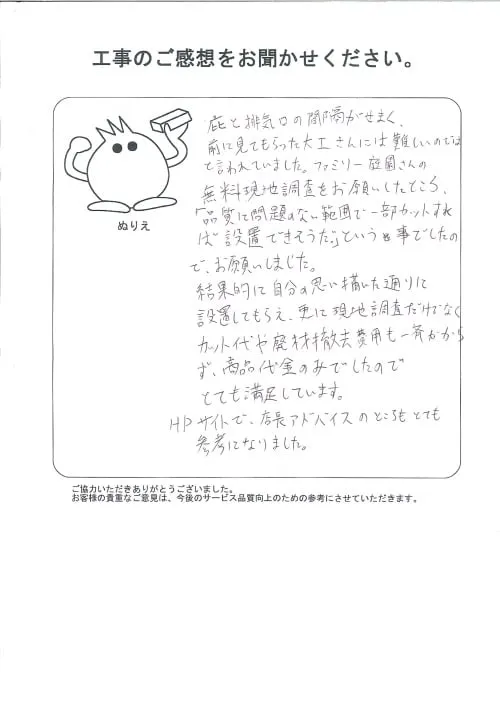 工事のご感想をお聞かせください。
ぬりえ
庇と排気口の間隔がせまく、
前に見てもらった大工さんには難しいのでは
と言われていました。ファミリー庭園さんの
無料現地調査をお願いしたところ、
「品質に問題のない範囲で一部カットすれ
ば設置できそうだ」という事でしたの
で、お願いしました。
結果的に自分の思い描いた通りに
設置してもらえ、更に現地調査だけでなく
カット代や廃材撤去費用も一斉かから
ず、商品代金のみでしたので
とても満足しています。
HPサイトで、店長アドバイスのところもとても
参考になりました。
ご協力いただきありがとうございました。
お客様の貴重なご意見は、今後のサービス品質向上のための参考にさせていただきます。